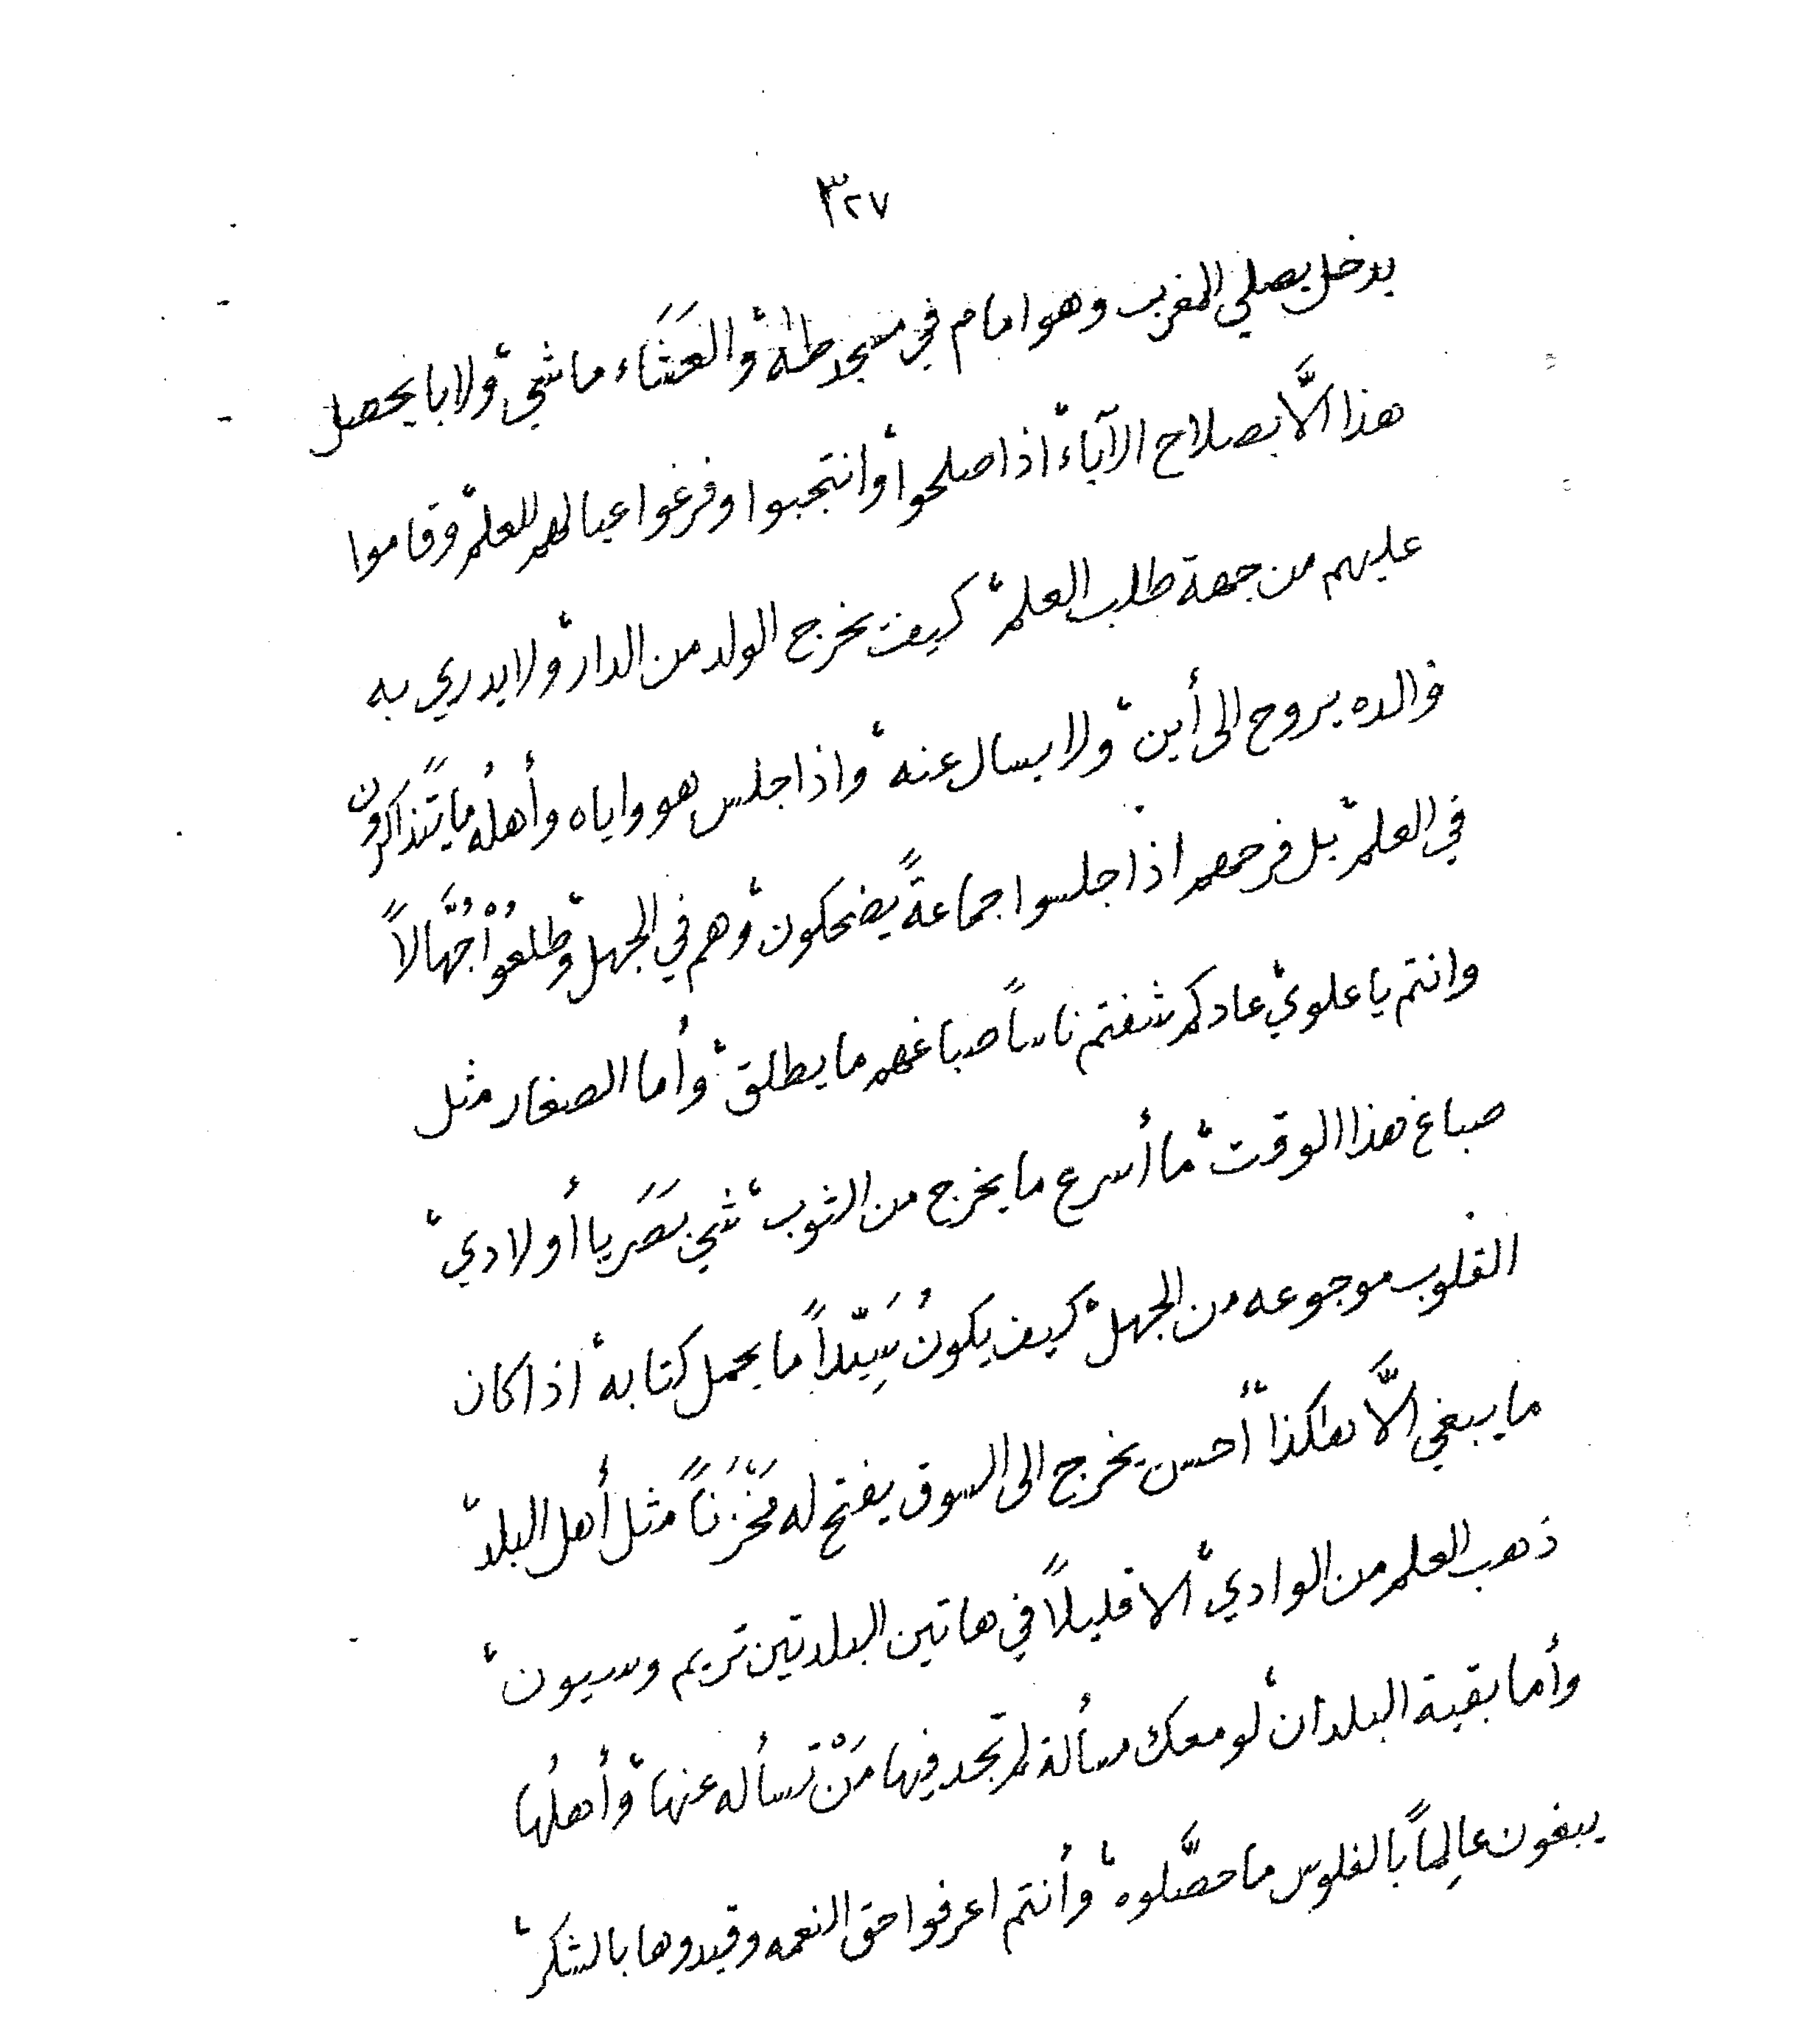 ٣٢٧
يدخل يصلي المغرب وهو امام في مسجد طه، والعَشَاء ماشي، ولا با يحصل
هذا الَّا بصلاح الآباء، اذا صلحوا، وانتجبوا وفرغوا عيالهم للعلم، وقاموا
عليهم من جهة طلب العلم، كيف يخرج الولد من الدار، ولا يدري به
والده يروح الى أين، ولا يسال عنه، واذا جلس هو واياه وأهلُه ما يتذاكرون
في العلم، بل فرحهم اذا جلسوا جماعةً يضحكون، وهم في الجهل، وطلعُوْا جُهَّالاً
وانتم يا علوي، عادكم شفتم ناساً صباغهم ما يطلق، وأما الصغار مثل
صباغ هذا الوقت، ما أسرع ما يخرج من الثوب، شي بَصَر يا أولادي،
القلوب موجوعه من الجهل، كيف يكونُ سَيِّداً ما يحمل كتابه، اذا كان
ما يبغي الَّا هاكذا، أحسن يخرج الى السوق يفتح له مَخْزَناً مثل أهل البلد،
ذهب العلم من الوادي، الا قليلاً في هاتين البلدتين تريم وسيون،
وأما بقية البلدان، لو معك مسألة لم تجد فيها مَنْ تسأله عنها، وأهلُها
يبغون عالِماً بالفلوس ما حصَّلوه، وأنتم اعرفوا حق النعمه وقيدوها بالشكر،